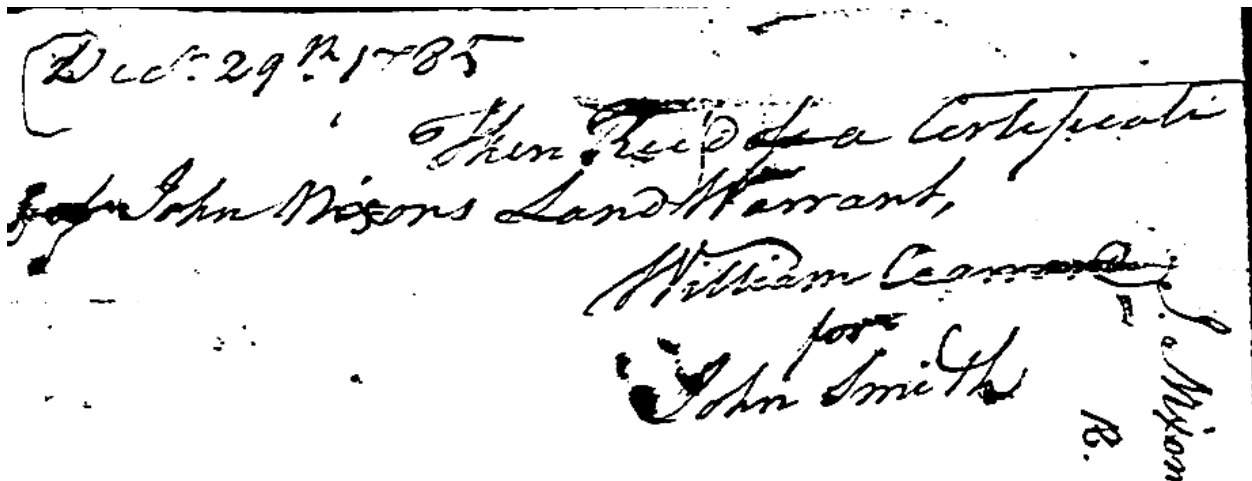 Decr. 29th 1785
Then Rec'd of a Certificate
for John Nixons Land Warrant,
William
for
John Smith
J. Nixon
R.